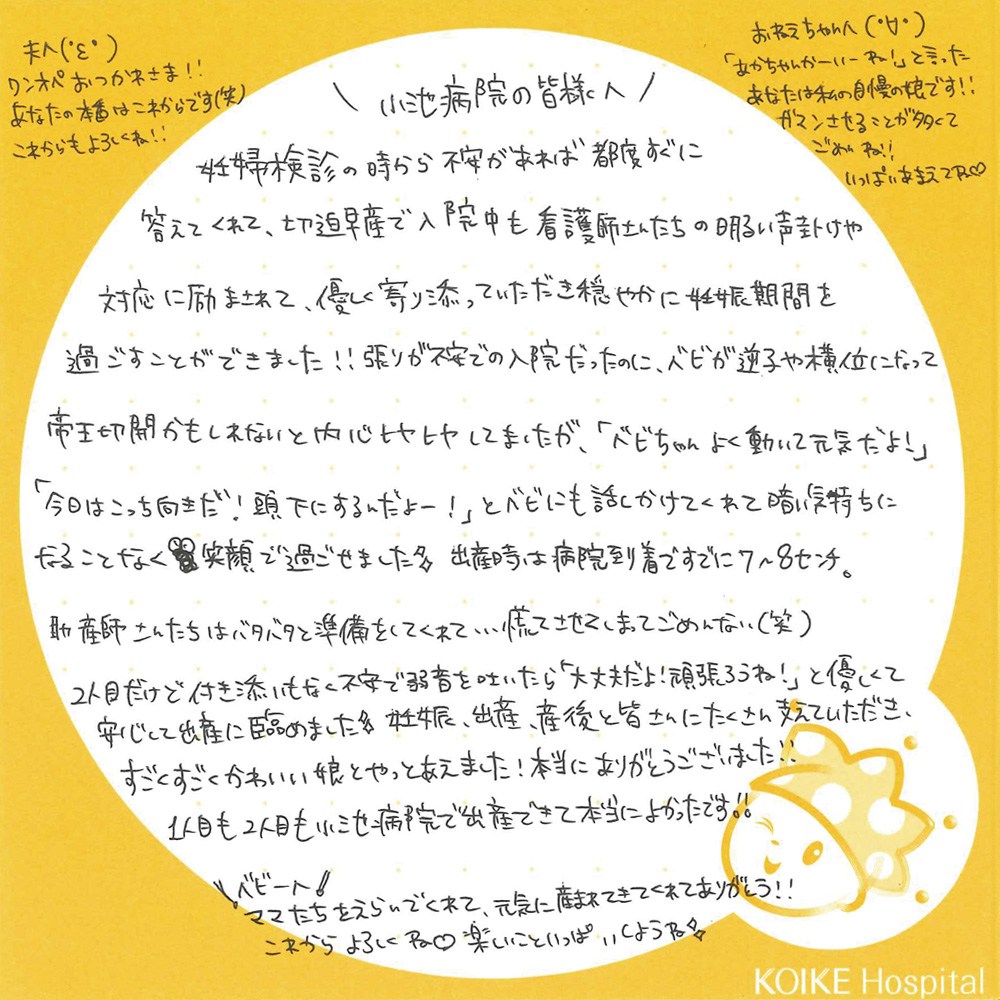 夫へ(°ε°)
ワンオペおつかれさま!!
あなたの本番はこれからです(笑)
これからもよろしくね!!
おねえちゃんへ(°∀°)
「あかちゃんかーいーね!」と言った
あなたは私の自慢の娘です!!
ガマンさせることが多くて
ごめんね!!
いっぱいあまえてね♡
\ 小池病院の皆様へ /
妊婦検診の時から不安があれば都度すぐに
答えてくれて、切迫早産で入院中も看護師さんたちの明るい声掛けや
対応に励まされて、優しく寄り添っていただき穏やかに妊娠期間を
過ごすことができました!!張りが不安での入院だったのに、ベビが逆子や横位になって
帝王切開かもしれないと内心ヒヤヒヤしてましたが、「ベビちゃんよく動いて元気だよ!」
「今日はこっち向きだ!頭下にするんだよー!」とベビにも話しかけてくれて暗い気持ちに
なることなく笑顔で過ごせました 出産時は病院到着ですでに7~8センチ。
助産師さんたちはバタバタと準備をしてくれて…慌てさせてしまってごめんなさい(笑)
2人目だけど付き添いもなく不安で弱音を吐いたら「大丈夫だよ!頑張ろうね!」と優しくて
安心して出産に臨めました 妊娠、出産、産後と皆さんにたくさん支えていただき、
すごくすごくかわいい娘とやっとあえました!本当にありがとうございました!!
1人目も2人目も小池病院で出産できて本当によかったです!!
\ベビーへ/
ママたちをえらんでくれて、元気に産まれてきてくれてありがとう!!
これからよろしくね♡楽しいこといっぱいしようね
KOIKE Hospital